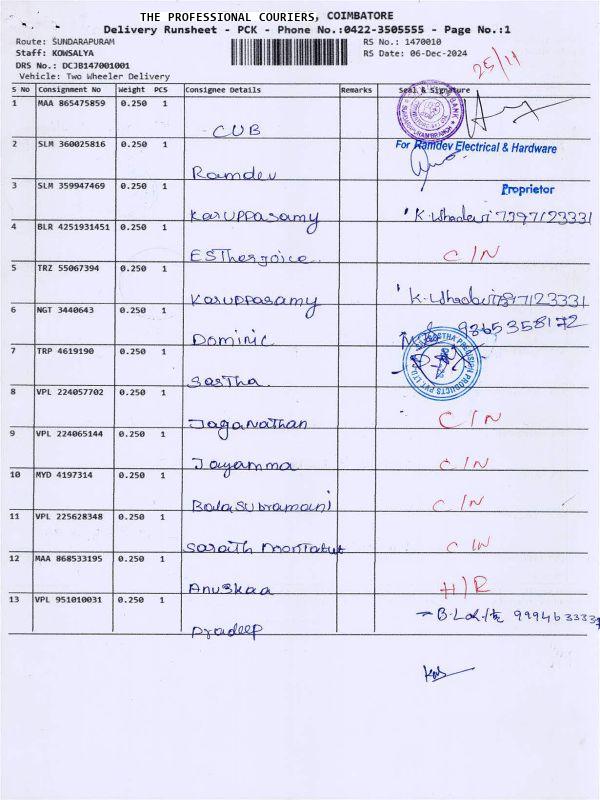 THE PROFESSIONAL COURIERS, COIMBATORE
Delivery Runsheet - PCK - Phone No.:0422-3505555 - Page No.:1
Route: SUNDARAPURAM RS No.: 1470010
Staff: KOWSALYA RS Date: 06-Dec-2024
DRS No.: DCJB147001001
Vehicle: Two Wheeler Delivery
25/11
S No Consignment No Weight PCS Consignee Details Remarks Seal & Signature
1 MAA 865475859 0.250 1
CUB
2 SLM 360025816 0.250 1 For Ramdev Electrical & Hardware
Ramdev
3 SLM 359947469 0.250 1 Proprietor
Karuppasamy 7397123331
4 BLR 4251931451 0.250 1
Estherjoice C/N
5 TRZ 55067394 0.250 1
Karuppasamy
6 NGT 3440643 0.250 1 9865358172
Dominic
7 TRP 4619190 0.250 1
Sastha
8 VPL 224057702 0.250 1
Jaganathan C/N
9 VPL 224065144 0.250 1
Jayamma C/N
10 MYD 4197314 0.250 1
Balasubramani C/N
11 VPL 225628348 0.250 1
Sarath C/N
12 MAA 868533195 0.250 1
Anuskaa H/R
13 VPL 951010031 0.250 1
Pradeep